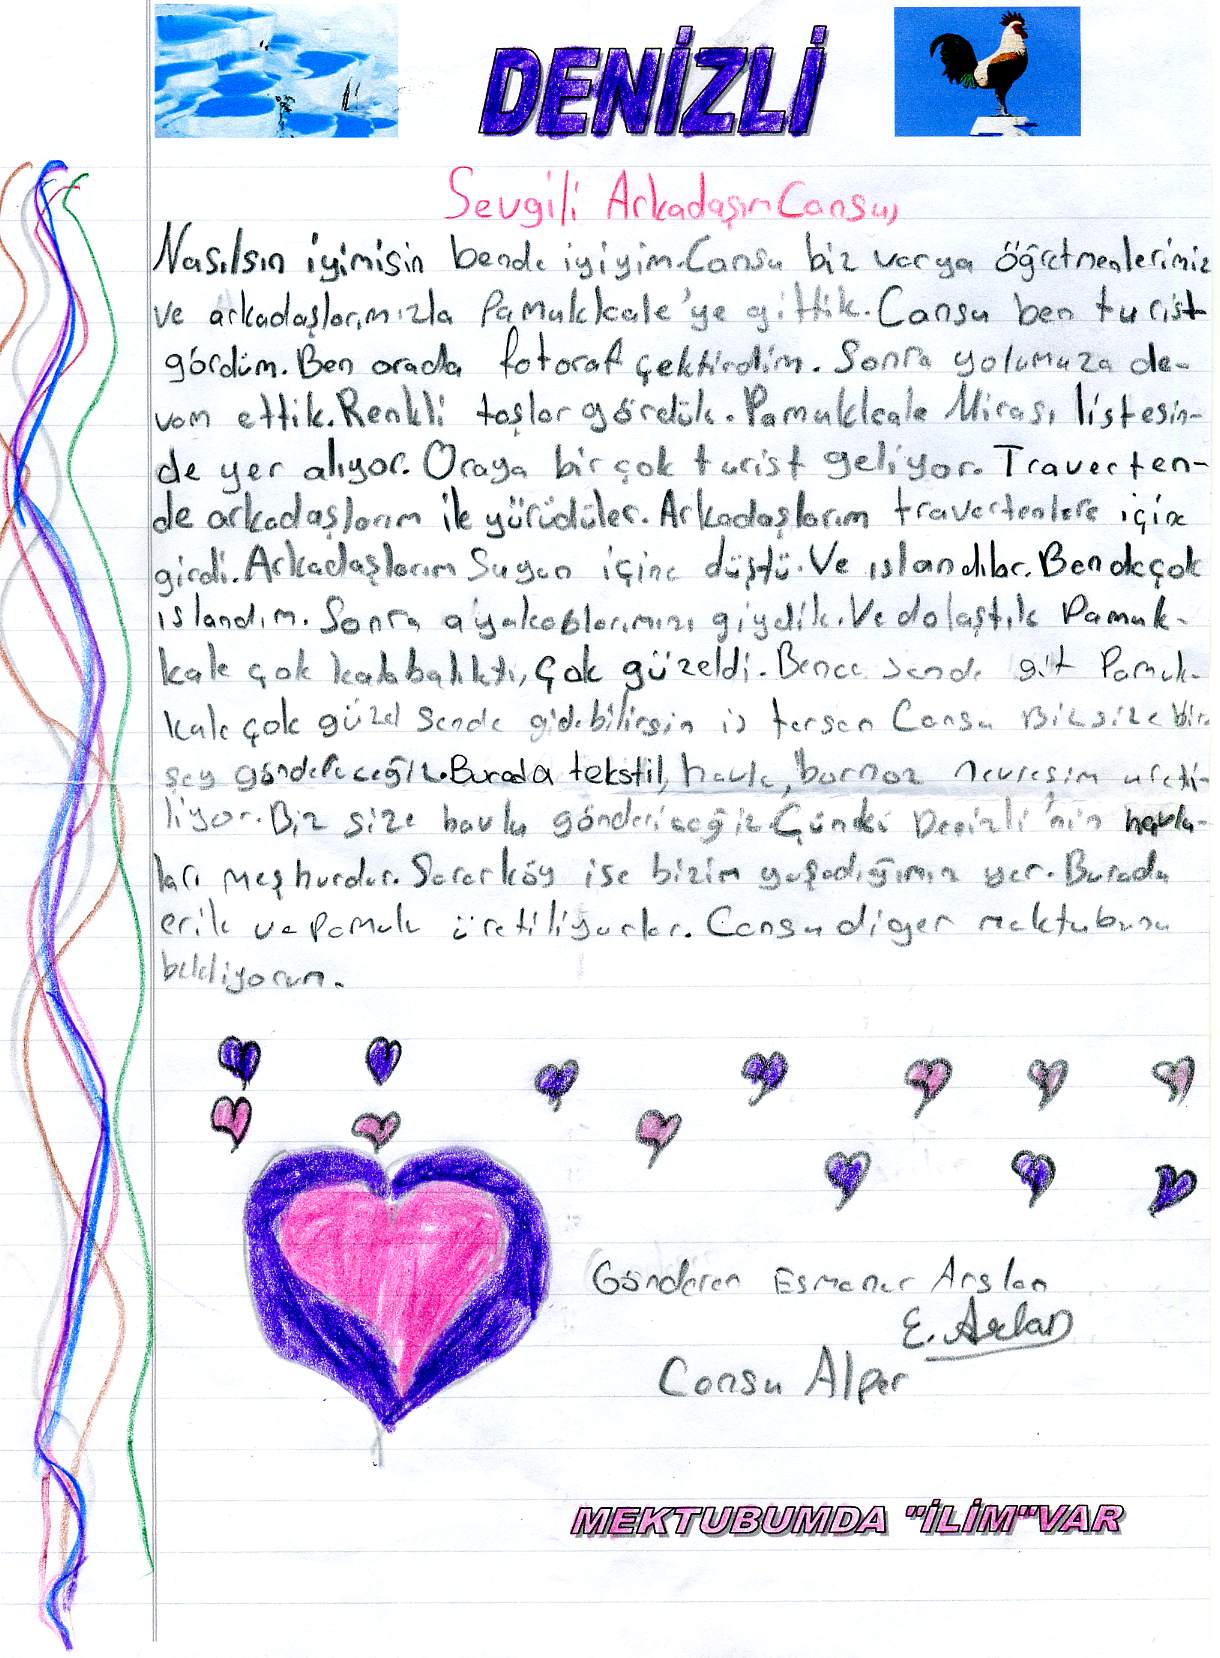 DENİZLİ
Sevgili Arkadaşım Cansu,
Nasılsın iyimisin bende iyiyim. Cansu biz varya öğretmenlerimiz
ve arkadaşlarımızla Pamukkale'ye gittik. Cansu ben turist
gördüm. Ben orada fotoraf çektirdim. Sonra yolumuza de-
vam ettik. Renkli taşlar gördük. Pamukkale Mirası listesin-
de yer alıyor. Oraya bir çok turist geliyor. Traverten-
de arkadaşlarım ile yürüdüler. Arkadaşlarım travertenlere içine
girdi. Arkadaşlarım Suyun içine düştü. Ve ıslandılar. Ben de çok
ıslandım. Sonra ayakablarımızı giydik. Ve dolaştık Pamuk-
kale çok kalabalıktı, Çok güzeldi. Bence sende git Pamuk-
kale çok güzel sende gidebilirsin istersen Cansu Biz size bir
şey göndereceğiz. Burada tekstil, havlu, bornoz nevresim üreti-
liyor. Biz size havlu göndericeğiz. Çünkü Denizli'nin havlu-
ları meşhurdur. Sarayköy ise bizim yaşadığımız yer. Burada
erik ve Pamuk üretiliyorlar. Cansu diger mektubunu
bekliyorum.
Gönderen Esmanur Arslan
E. Arslan
Cansu Alper
MEKTUBUMDA "İLİM" VAR